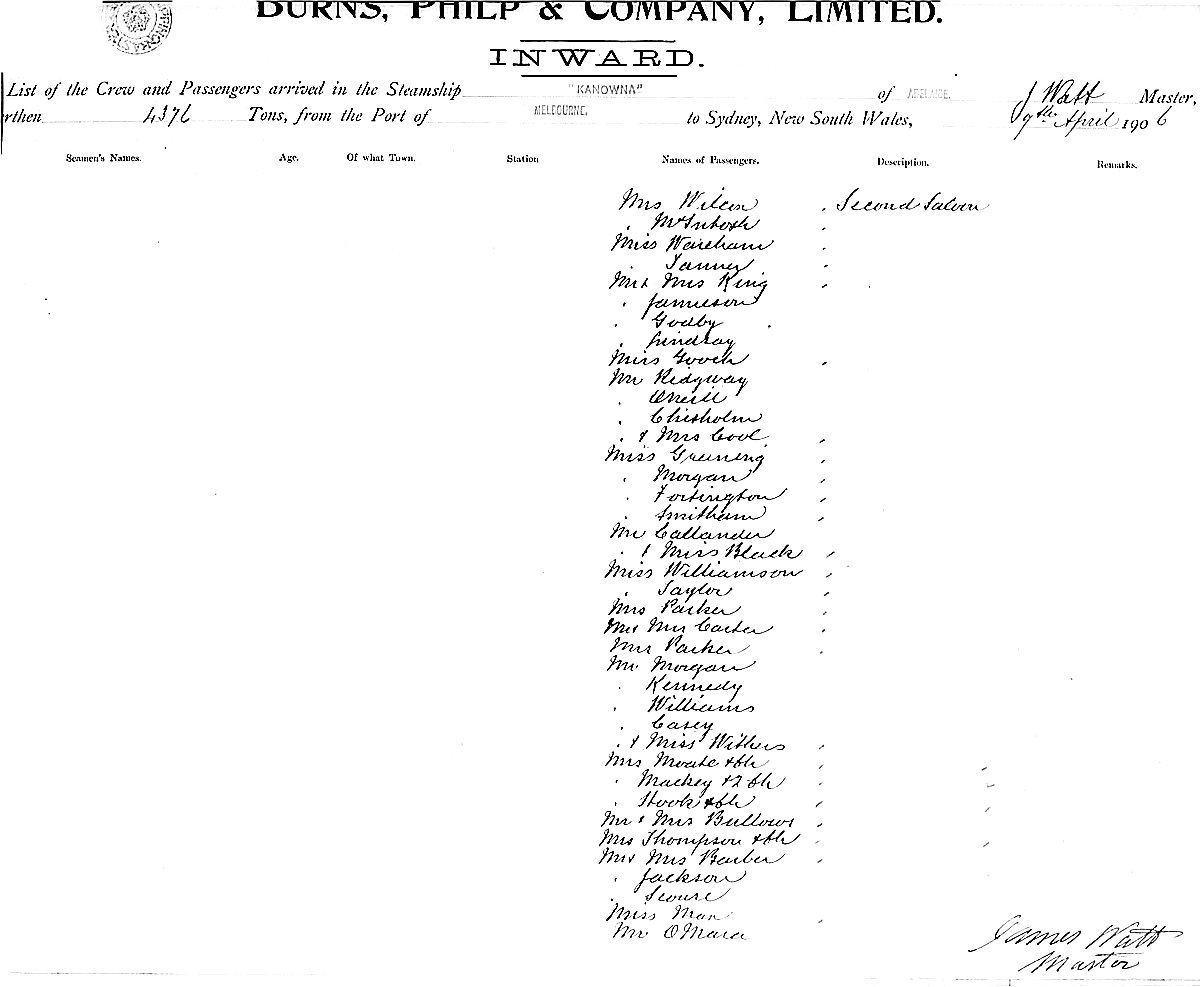 BURNS, PHILP & COMPANY, LIMITED.
INWARD.
List of the Crew and Passengers arrived in the Steamship "KANOWNA" of ADELAIDE, J Watt Master,
rthen 4376 Tons, from the Port of MELBOURNE, to Sydney, New South Wales, 9th April 1906
Seamen's Names. Age. Of what Town. Station Names of Passengers. Description. Remarks.
Mrs Wilcox , Second Saloon
" McIntosh "
Miss Wareham "
" Tanner "
Mr & Mrs King "
" Jamieson
" Godby
" Lindsay
Miss Gooch "
Mr Ridgway
" O'Neill
" Chisholm
" & Mrs Cool "
Miss Greening "
" Morgan "
" Fortington "
" Smitham "
Mr Callander
" & Miss Black "
Miss Williamson "
" Taylor "
Mrs Parker "
Mr & Mrs Carter "
Mrs Parker "
Mr Morgan
" Kennedy
" Williams
" Casey
" & Miss Withers "
Mrs Moate & ch "
" Mackey & 2 ch "
" Hook & ch "
Mr & Mrs Bullows "
Mrs Thompson & ch "
Mr & Mrs Barber "
" Jackson
" Scouse
Miss Man "
Mr O'Mara
James Watt
Master